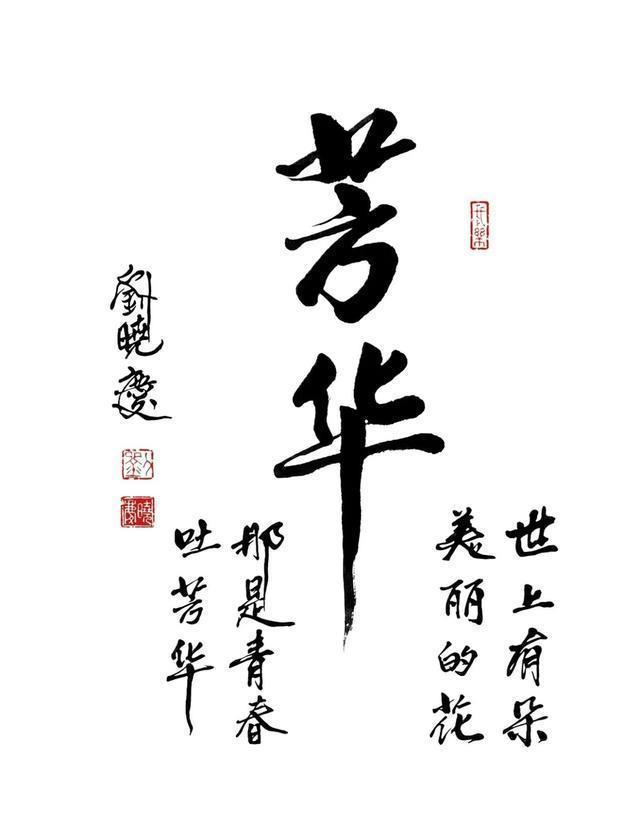 芳华
世上有朵
美丽的花
那是青春
吐芳华
劉曉慶